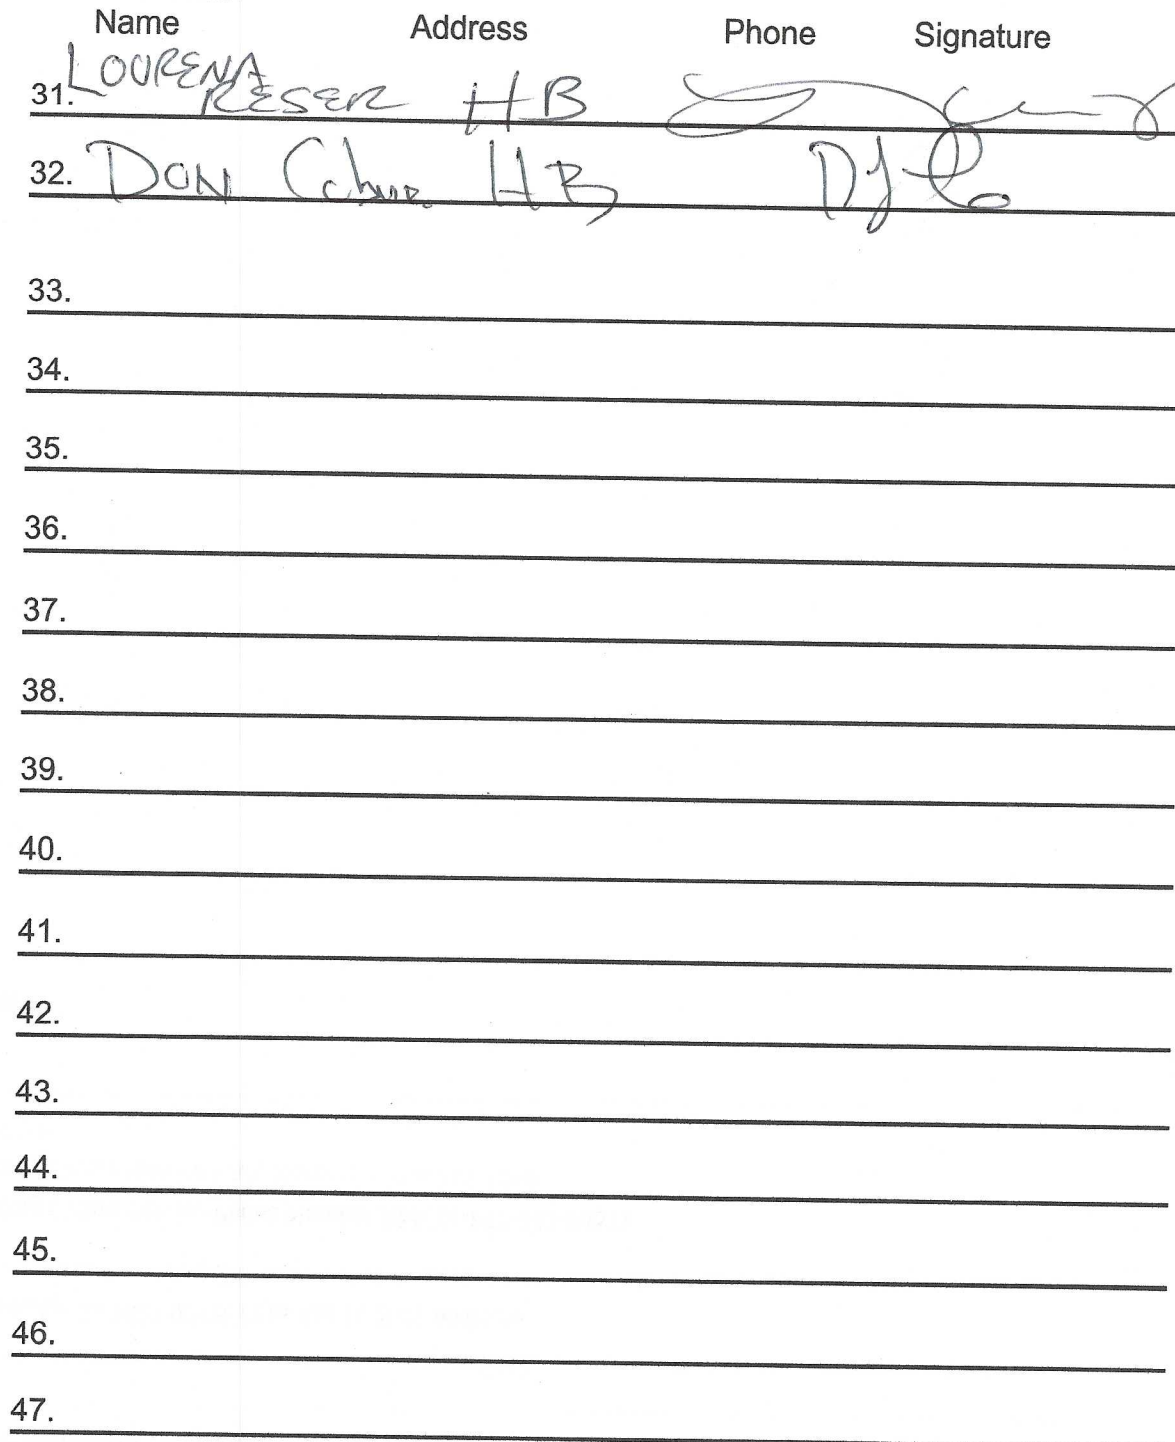 Name Address Phone Signature
LOURENA
31. RESER HB
32. DON HB
33.
34.
35.
36.
37.
38.
39.
40.
41.
42.
43.
44.
45.
46.
47.